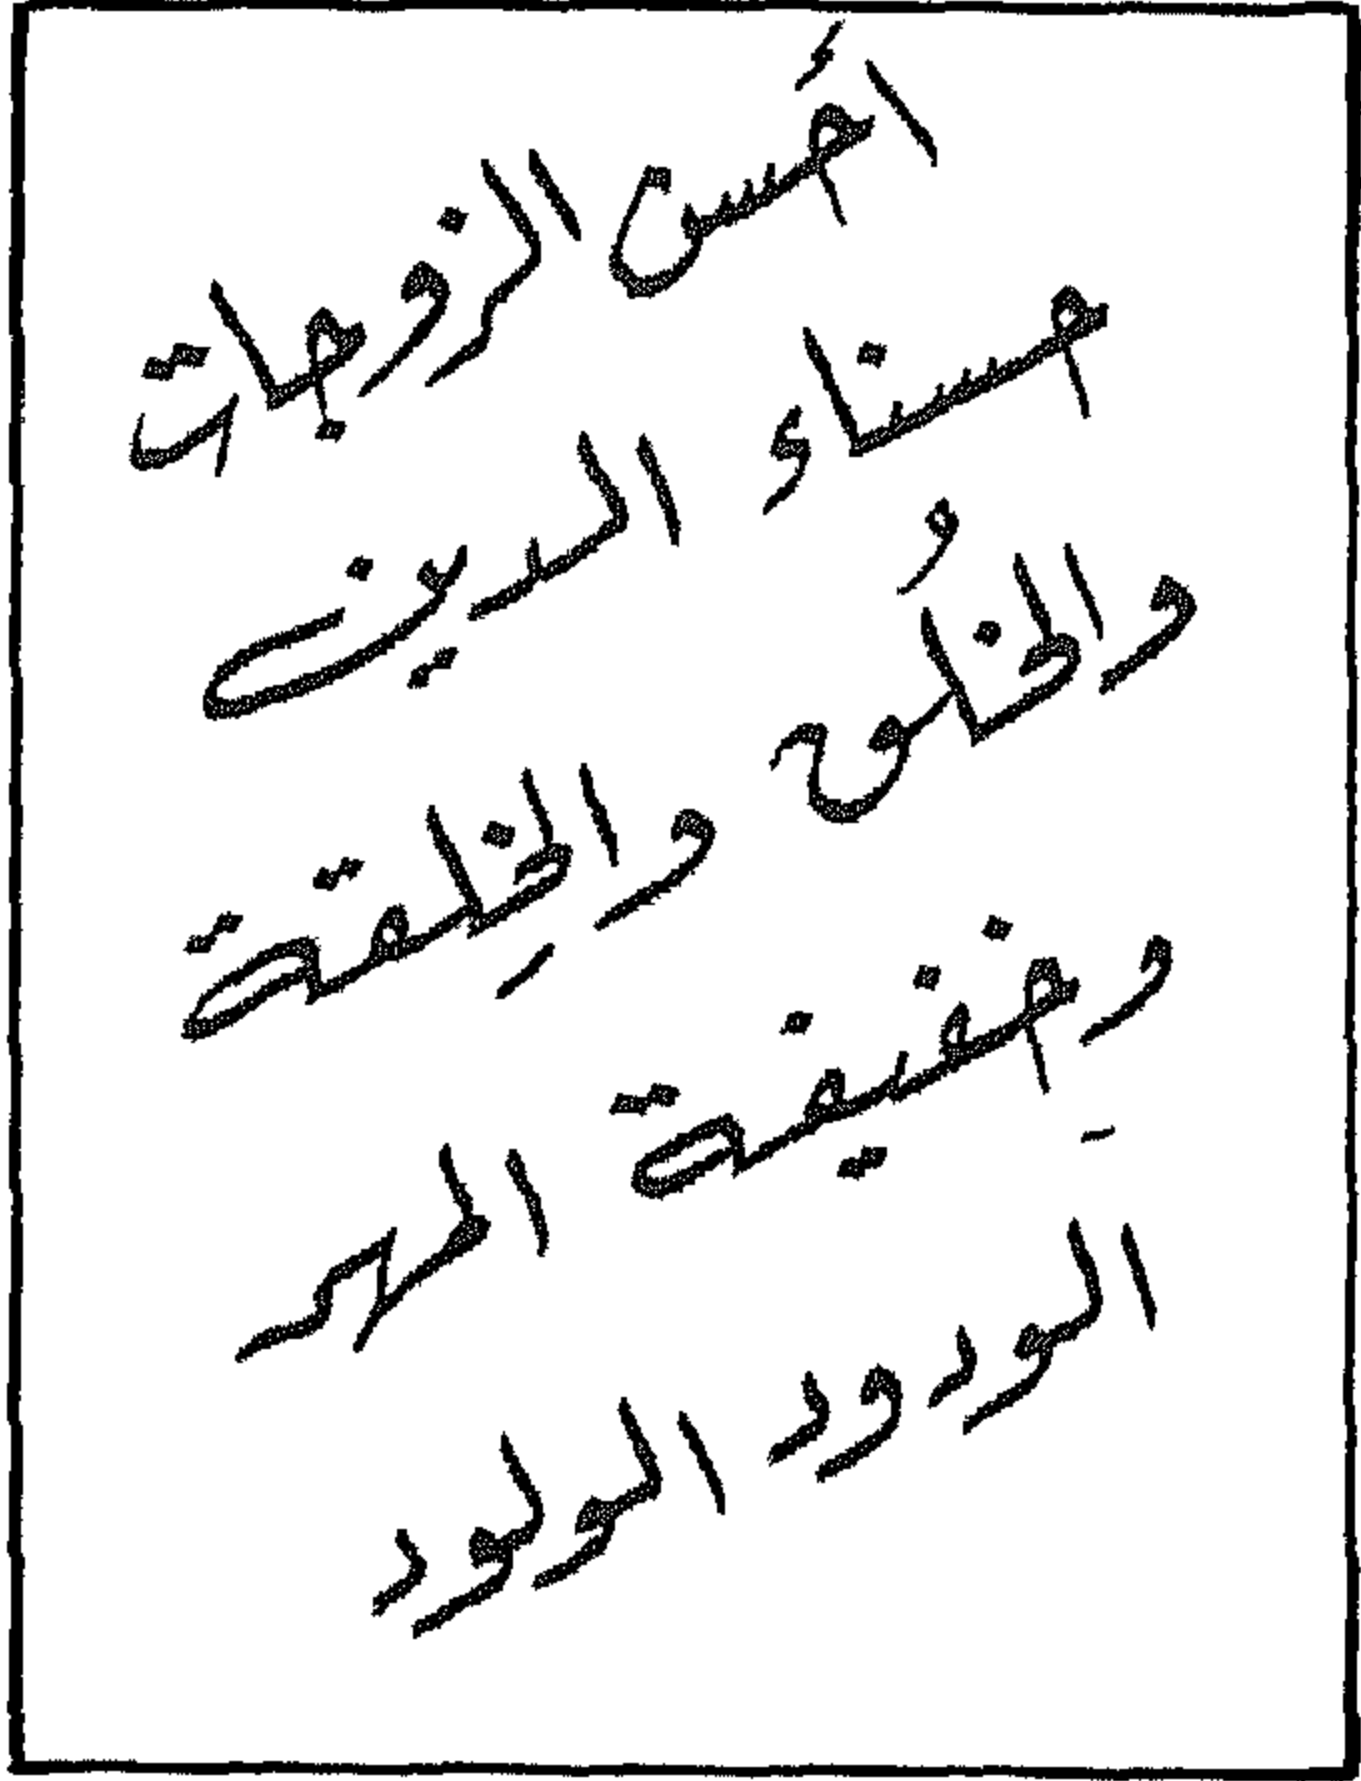 أحسن الزوجات
حسناء الدين
والخلُق والخِلقة
وخفيفة المهر
الودود الولود